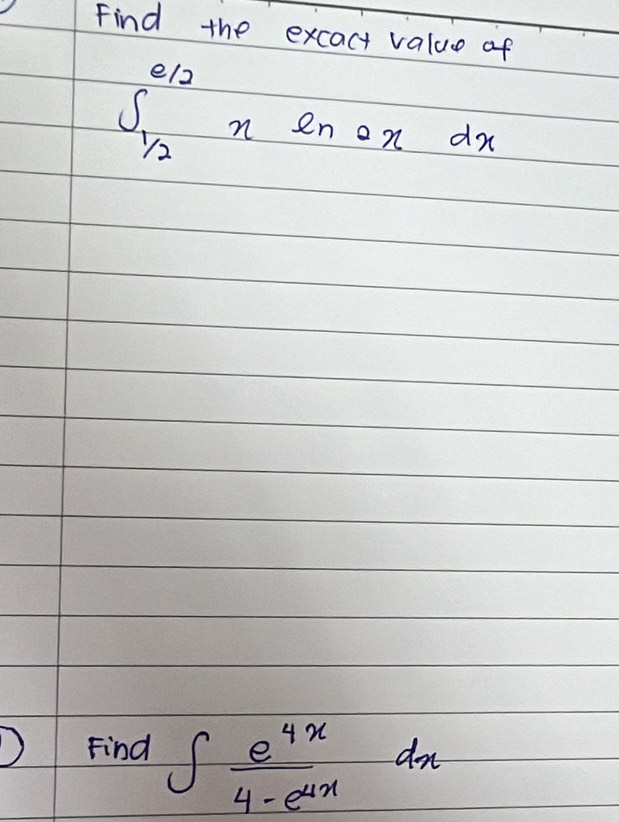 Find the excact value of
∫_{1/2}^{e/2} x ln 2x dx
Find ∫ e^{4x} / (4 - e^{4x}) dx